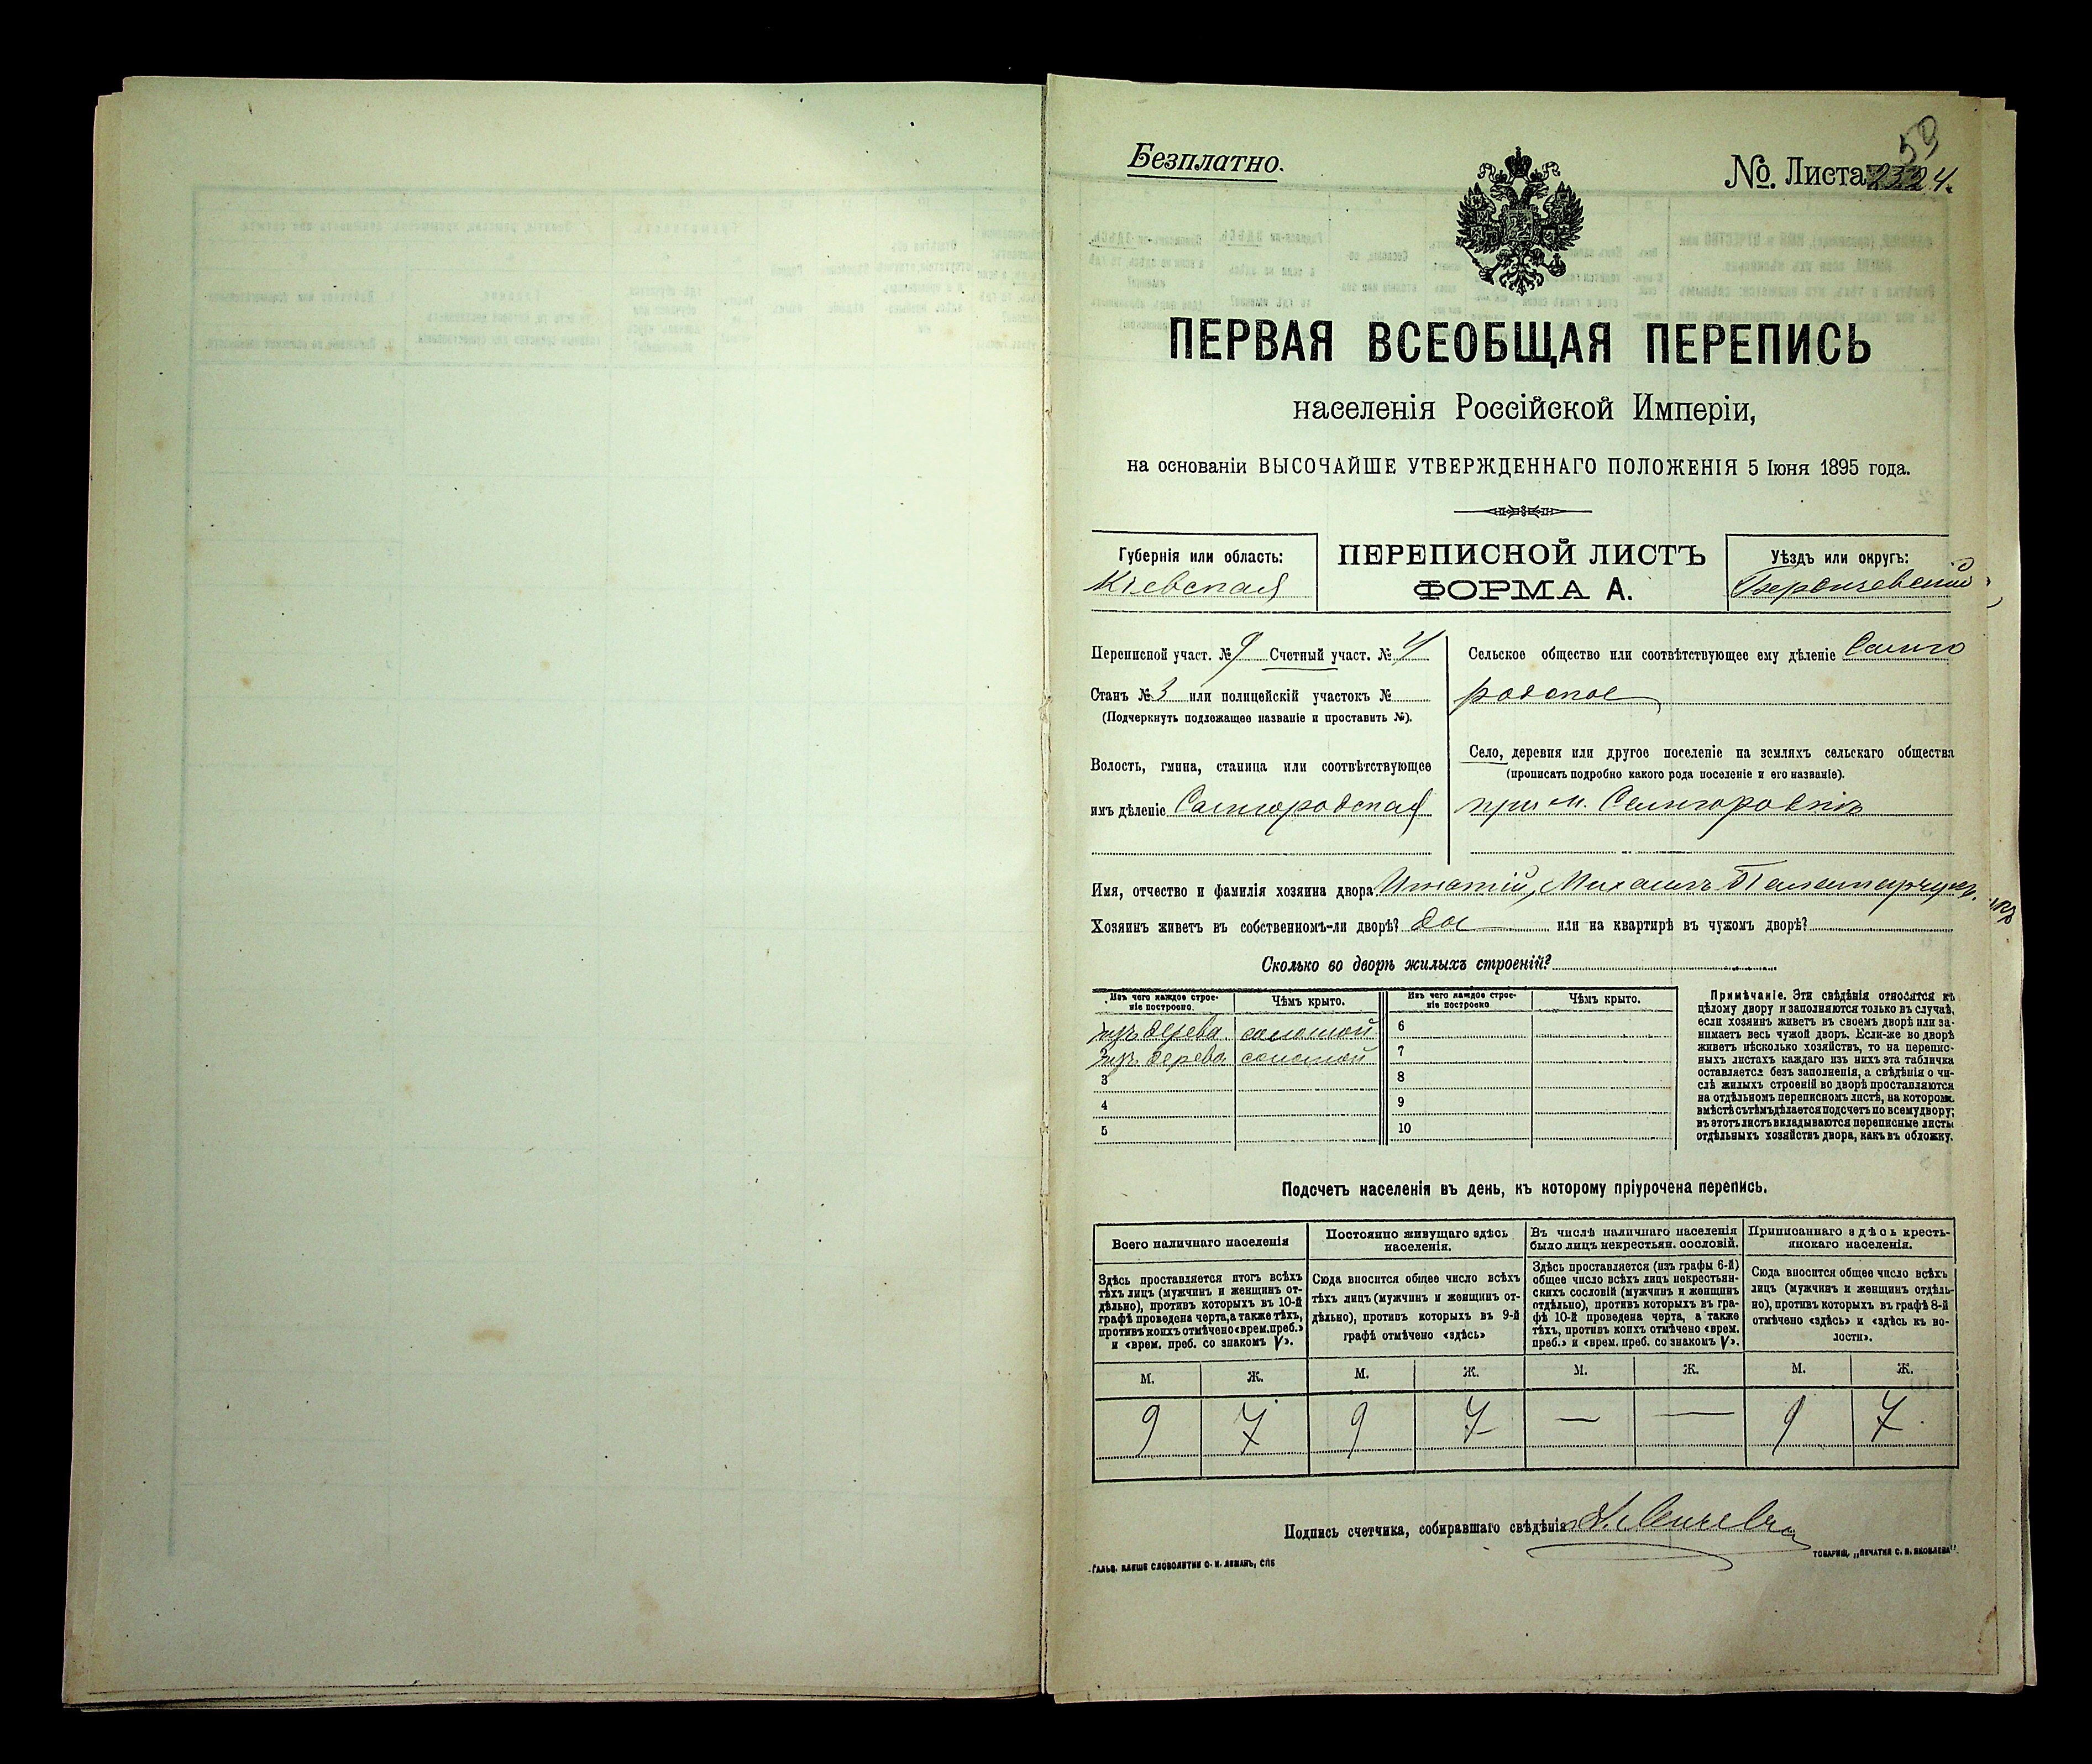 59
Безплатно.
№. Листа 24.
ПЕРВАЯ ВСЕОБЩАЯ ПЕРЕПИСЬ
населенія Россійской Имперіи,
на основаніи ВЫСОЧАЙШЕ УТВЕРЖДЕННАГО ПОЛОЖЕНІЯ 5 Іюня 1895 года.
Губернія или область:
Кіевская
ПЕРЕПИСНОЙ ЛИСТЪ
ФОРМА А.
Уѣздъ или округъ:
Бердичевскій
Переписной участ. № 9 Счетный участ. № 4
Станъ № 3 или полицейскій участокъ №
(Подчеркнуть подлежащее названіе и проставить №).
Волость, гмина, станица или соотвѣтствующее
имъ дѣленіе Самгородская
Сельское общество или соотвѣтствующее ему дѣленіе Самго
родское
Село, деревня или другое поселеніе на земляхъ сельскаго общества
(прописать подробно какого рода поселеніе и его названіе).
при м. Самгородкѣ
Имя, отчество и фамилія хозяина двора Игнатій, Михаилъ
Хозяинъ живетъ въ собственномъ-ли дворѣ? да или на квартирѣ въ чужомъ дворѣ?
Сколько во дворѣ жилыхъ строеній?
Изъ чего каждое строе-
ніе построено.
Чѣмъ крыто.
Изъ чего каждое строе-
ніе построено
Чѣмъ крыто.
изъ дерева соломой 6
изъ дерева соломой 7
3 8
4 9
5 10
Примѣчаніе. Эти свѣдѣнія относятся къ
цѣлому двору и заполняются только въ случаѣ,
если хозяинъ живетъ въ своемъ дворѣ или за-
нимаетъ весь чужой дворъ. Если-же во дворѣ
живетъ нѣсколько хозяйствъ, то на перепис-
ныхъ листахъ каждаго изъ нихъ эта табличка
оставляется безъ заполненія, а свѣдѣнія о чи-
слѣ жилыхъ строеній во дворѣ проставляются
на отдѣльномъ переписномъ листѣ, на которомъ
вмѣстѣ съ тѣмъ дѣлается подсчетъ по всему двору;
въ этотъ листъ вкладываются переписные листы
отдѣльныхъ хозяйствъ двора, какъ въ обложку.
Подсчетъ населенія въ день, къ которому пріурочена перепись.
Всего наличнаго населенія
Постоянно живущаго здѣсь
населенія.
Въ числѣ наличнаго населенія
было лицъ некрестьян. сословій.
Приписаннаго здѣсь кресть-
янскаго населенія.
Здѣсь проставляется итогъ всѣхъ
тѣхъ лицъ (мужчинъ и женщинъ от-
дѣльно), противъ которыхъ въ 10-й
графѣ проведена черта, а также тѣхъ,
противъ коихъ отмѣчено «врем. преб.»
и «врем. преб. со знакомъ V».
Сюда вносится общее число всѣхъ
тѣхъ лицъ (мужчинъ и женщинъ от-
дѣльно), противъ которыхъ въ 9-й
графѣ отмѣчено «здѣсь»
Здѣсь проставляется (изъ графы 6-й)
общее число всѣхъ лицъ некрестьян-
скихъ сословій (мужчинъ и женщинъ
отдѣльно), противъ которыхъ въ гра-
фѣ 10-й проведена черта, а также
тѣхъ, противъ коихъ отмѣчено «врем.
преб.» и «врем. преб. со знакомъ V».
Сюда вносится общее число всѣхъ
лицъ (мужчинъ и женщинъ отдѣль-
но), противъ которыхъ въ графѣ 8-й
отмѣчено «здѣсь» и «здѣсь къ во-
лости».
М. Ж. М. Ж. М. Ж. М. Ж.
9 7 9 7 — — 9 7
Подпись счетчика, собиравшаго свѣдѣнія
Гальв. клише словолитни О. И. Леманъ, СПБ
Товарищ. „Печатня С. П. Яковлева".